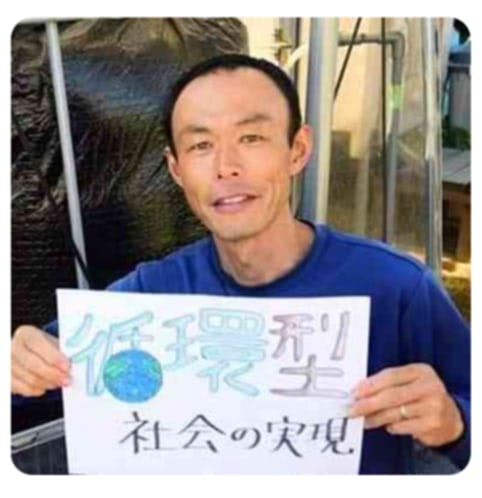 循環型
社会の実現